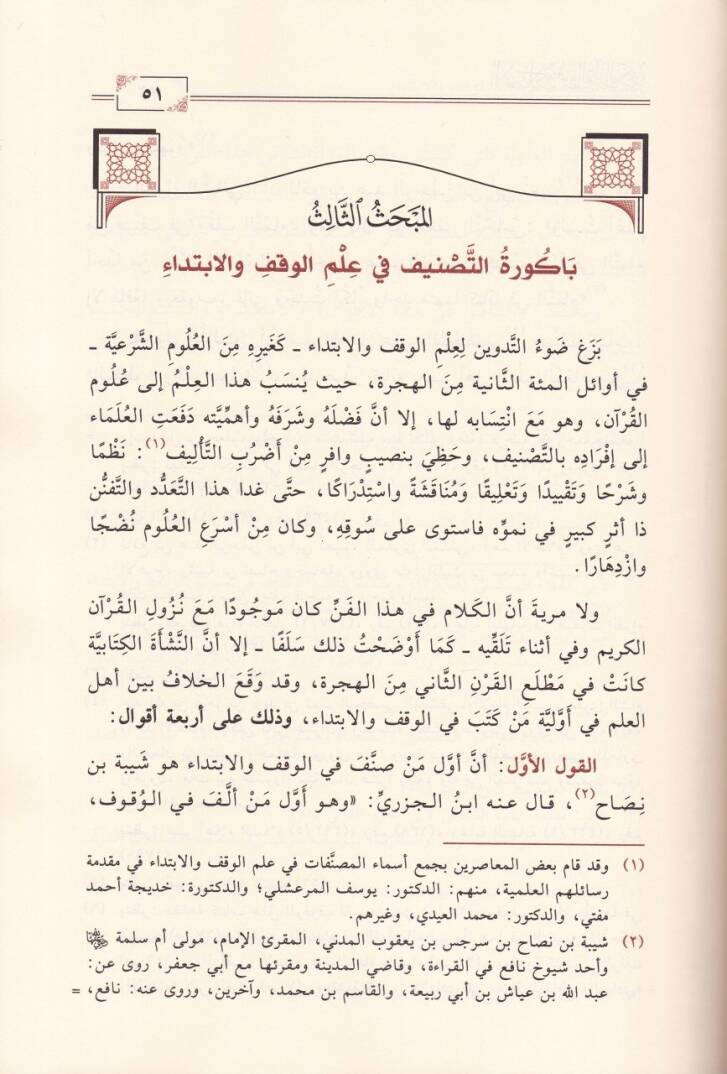 ٥١
المَبْحَثُ الثَّالِثُ
بَاكُورَةُ التَّصْنيف في عِلْمِ الوقفِ والابتداءِ
بَزَغ ضَوءُ التَّدوين لِعِلْمِ الوقف والابتداء ـ كَغَيرِهِ مِنَ العُلُومِ الشَّرْعيَّة ـ
في أوائل المئة الثَّانية مِنَ الهجرة، حيث يُنسَبُ هذا العِلْمُ إلى عُلُوم
القُرْآن، وهو مَعَ انْتِسَابه لها، إلا أنَّ فَضْلَهُ وشَرَفَهُ وأهمِّيَّته دَفَعَتِ العُلَمَاء
إلى إفْرَادِه بالتَّصْنيف، وحَظِيَ بنصيبٍ وافرٍ مِنْ أضْرُبِ التَّأليف(١): نَظْمًا
وشَرْحًا وَتَقْييدًا وَتَعْلِيقًا وَمُنَاقَشَةً واسْتِدْرَاكًا، حتَّى غدا هذا التَّعَدُّد والتَّفنُّن
ذا أثرٍ كبيرٍ في نموِّه فاستوى على سُوقِهِ، وكان مِنْ أسْرَعِ العُلُوم نُضْجًا
وازْدِهَارًا.
ولا مريةَ أنَّ الكَلام في هذا الفَنِّ كان مَوجُودًا مَعَ نُزُولِ القُرْآن
الكريم وفي أثناء تَلَقِّيه ـ كَمَا أَوْضَحْتُ ذلك سَلَفًا ـ إلا أنَّ النَّشْأةَ الكِتَابيَّة
كانَتْ في مَطْلَعِ القَرْنِ الثَّاني مِنَ الهجرة، وقد وَقَعَ الخلافُ بين أهل
العلم في أوَّليَّة مَنْ كَتَبَ في الوقف والابتداء، وذلك على أربعة أقوال:
القول الأوَّل: أنَّ أوَّل مَنْ صنَّفَ في الوقف والابتداء هو شَيبة بن
نِصَاح(٢)، قال عنه ابنُ الجزريِّ: «وهو أوَّل مَنْ ألَّفَ في الوُقوف،
(١) وقد قام بعض المعاصرين بجمع أسماء المصنَّفات في علم الوقف والابتداء في مقدمة
رسائلهم العلمية، منهم: الدكتور: يوسف المرعشلي؛ والدكتورة: خديجة أحمد
مفتي، والدكتور: محمد العيدي، وغيرهم.
(٢) شيبة بن نصاح بن سرجس بن يعقوب المدني، المقرئ الإمام، مولى أم سلمة
وأحد شيوخ نافع في القراءة، وقاضي المدينة ومقرئها مع أبي جعفر، روى عن:
عبد الله بن عياش بن أبي ربيعة، والقاسم بن محمد، وآخرين، وروى عنه: نافع، =